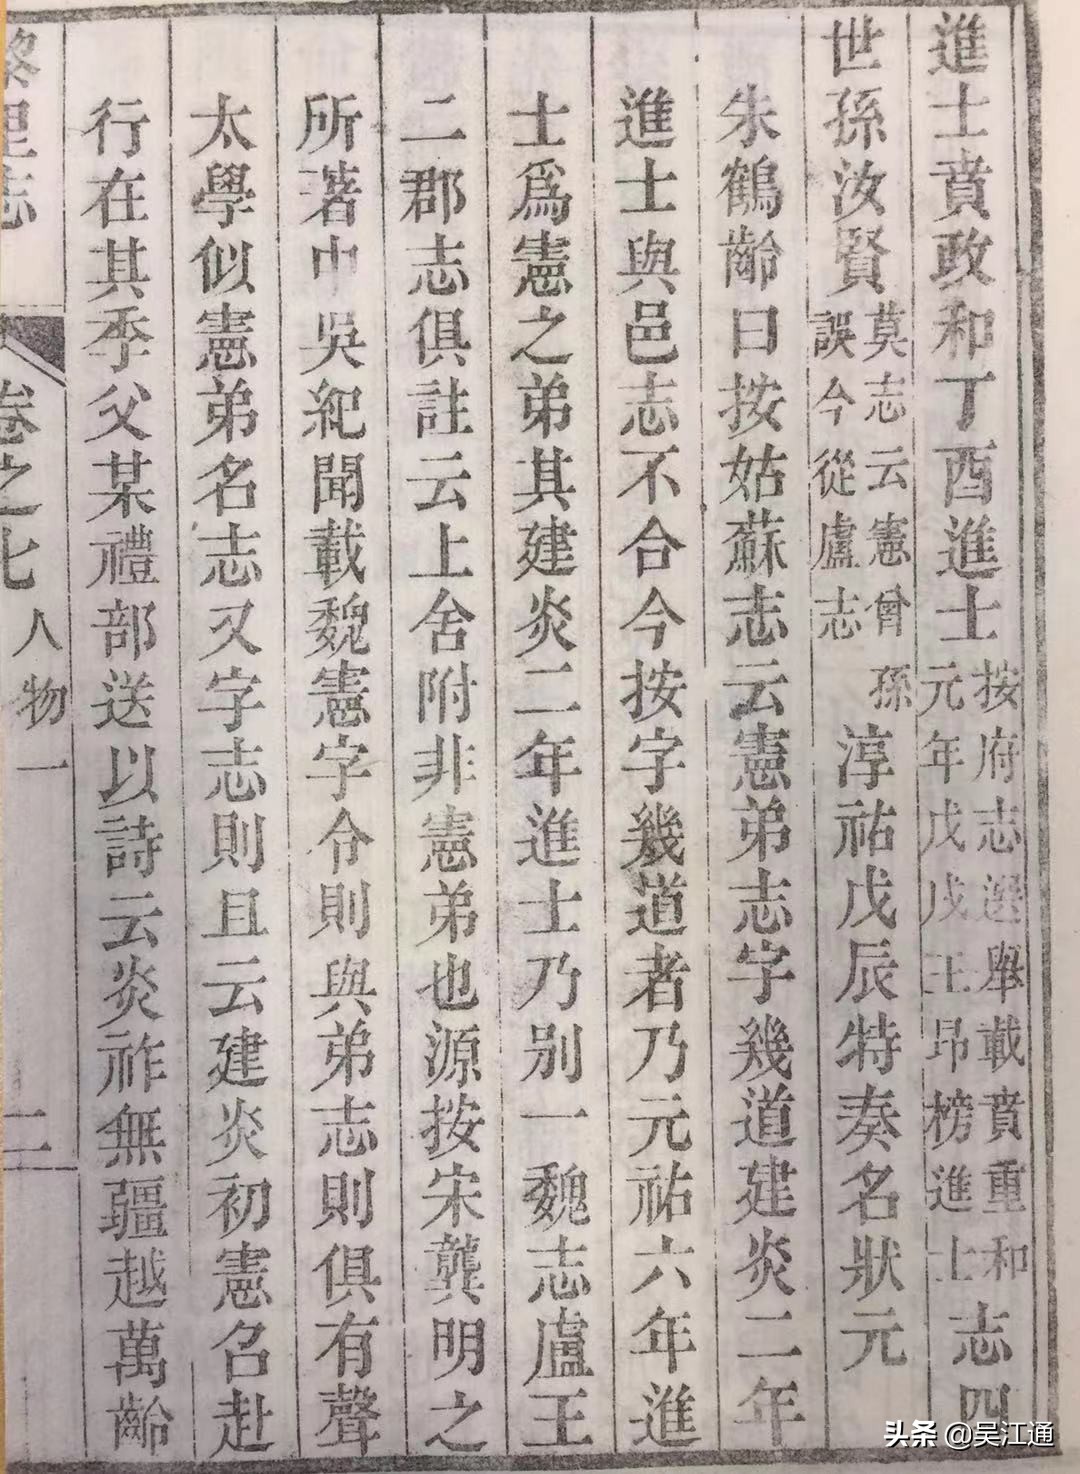 進士賁政和丁酉進士按府志選舉載賁重和元年戊戌王昂榜進士志四
世孫汝賢莫志云憲曾孫誤今從盧志淳祐戊辰特奏名狀元
朱鶴齡曰按姑蘇志云憲弟志字幾道建炎二年
進士與邑志不合今按字幾道者乃元祐六年進
士爲憲之弟其建炎二年進士乃别一魏志盧王
二郡志俱註云上舍附非憲弟也源按宋龔明之
所著中吳紀聞載魏憲字令則與弟志則俱有聲
太學似憲弟名志又字志則且云建炎初憲召赴
行在其季父某禮部送以詩云炎祚無疆越萬齡
黎里志
卷之七
人物一
二
头条 @吴江通